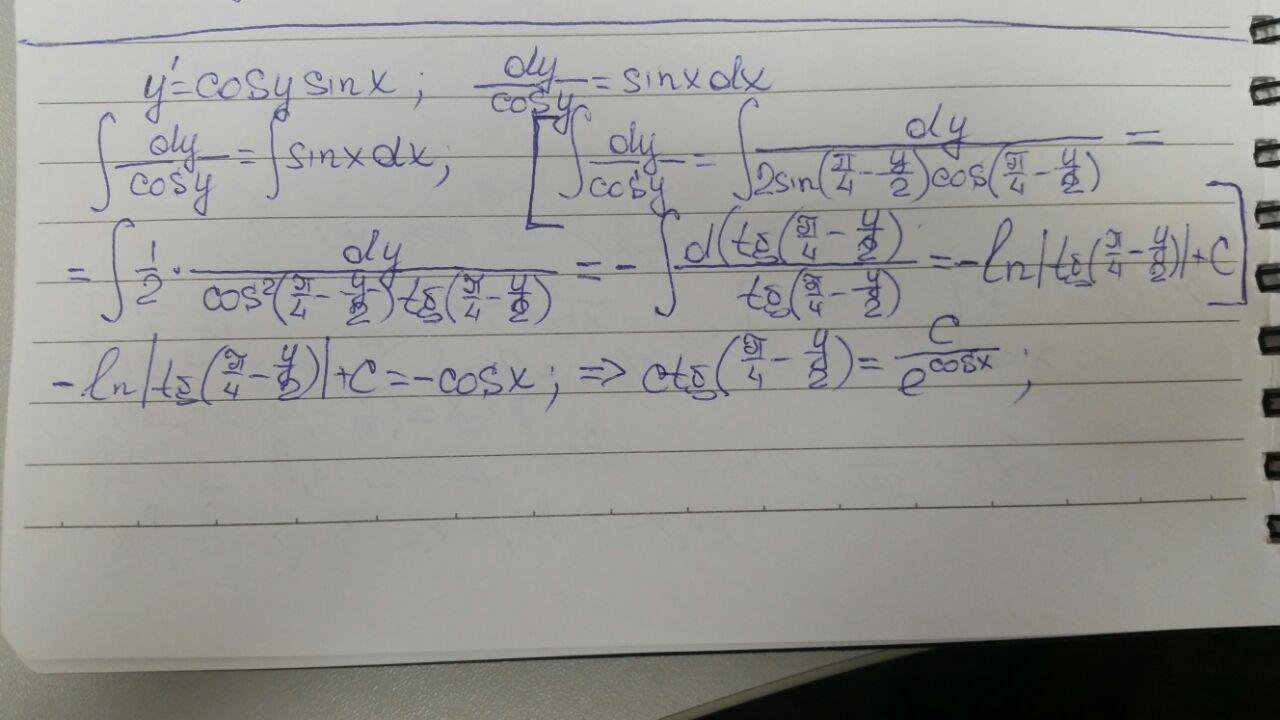 y' = cosy sinx ; dy/cosy = sinx dx
∫ dy/cosy = ∫ sinx dx ; [ ∫ dy/cosy = ∫ dy/(2sin(π/4 - y/2)cos(π/4 - y/2)) =
= ∫ 1/2 · dy/(cos²(π/4 - y/2) tg(π/4 - y/2)) = - ∫ d(tg(π/4 - y/2)/tg(π/4 - y/2) = -ln|tg(π/4 - y/2)| + C ]
-ln|tg(π/4 - y/2)| + C = -cosx ; => ctg(π/4 - y/2) = C/e^cosx ;